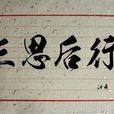 三思后行